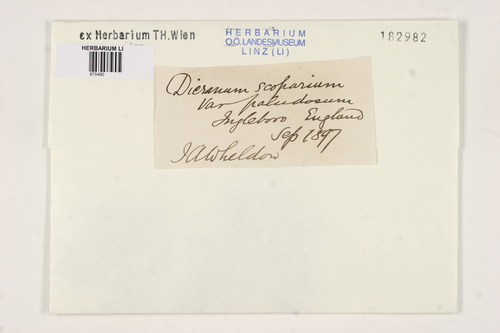 ex Herbarium TH.Wien
HERBARIUM LI
975490
HERBARIUM
O.Ö. LANDESMUSEUM
LINZ (LI)
182982
Dicranum scoparium
Var paludosum
Ingleboro England
Sep 1897
J A Wheldon